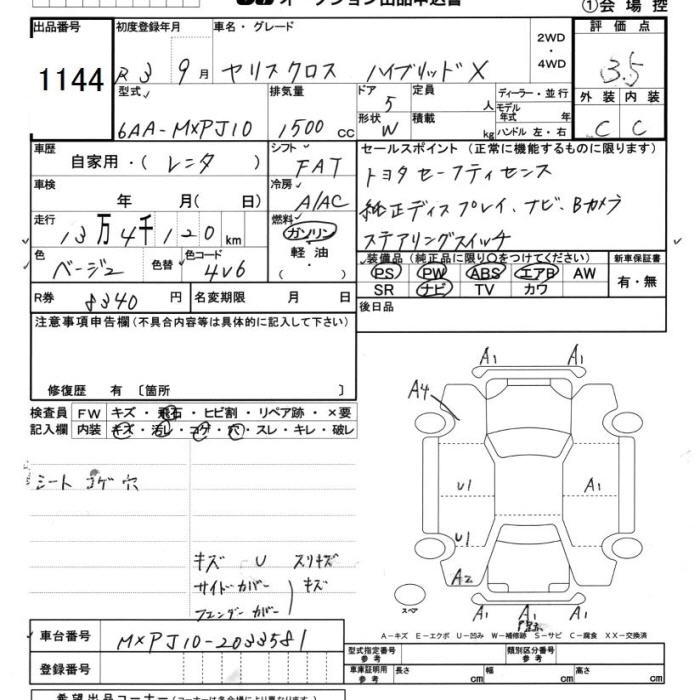 オークション出品申込書
①会場控
出品番号 初度登録年月 車名・グレード 2WD・4WD 評価点
1144 R3 9月 ヤリスクロス ハイブリッドX 3.5
型式 排気量 ドア 定員 ディーラー・並行 外装 内装
6AA-MXPJ10 1500cc 5 人 モデル年式 年式 C C
形状 W 積載 kg ハンドル 左・右
車歴 シフト セールスポイント(正常に機能するものに限ります)
自家用・(レンタ) FAT トヨタセーフティセンス
車検 冷房
年 月(日) A/AC 純正ディスプレイ、ナビ、Bカメラ
走行 燃料
13万4千120km ガソリン・軽油・( ) ステアリングスイッチ
色 色替 色コード 装備品(純正品に限り○をつけてください) 新車保証書
ベージュ 4V6 PS PW ABS エアB AW 有・無
SR ナビ TV カワ
R券 8340円 名変期限 月 日 後日品
注意事項申告欄(不具合内容等は具体的に記入して下さい)
修復歴 有〔箇所 〕
検査員 FW キズ・飛石・ヒビ割・リペア跡・×要
記入欄 内装 キズ・汚レ・コゲ・穴・スレ・キレ・破レ
シート コゲ穴
キズ U スリキズ
サイドカバー キズ
フェンダーカバー
A1 A1
A4
U1 A1
U1
A2
スペア
A1 A1 A1
A-キズ E-エクボ U-凹み W-補修跡 S-サビ C-腐食 XX-交換済
車台番号 MXPJ10-2033581
型式指定番号 参考 類別区分番号 参考
登録番号 車庫証明用 参考 長さ cm 幅 cm 高さ cm
希望出品コーナー(コーナーは各会場により異なります)